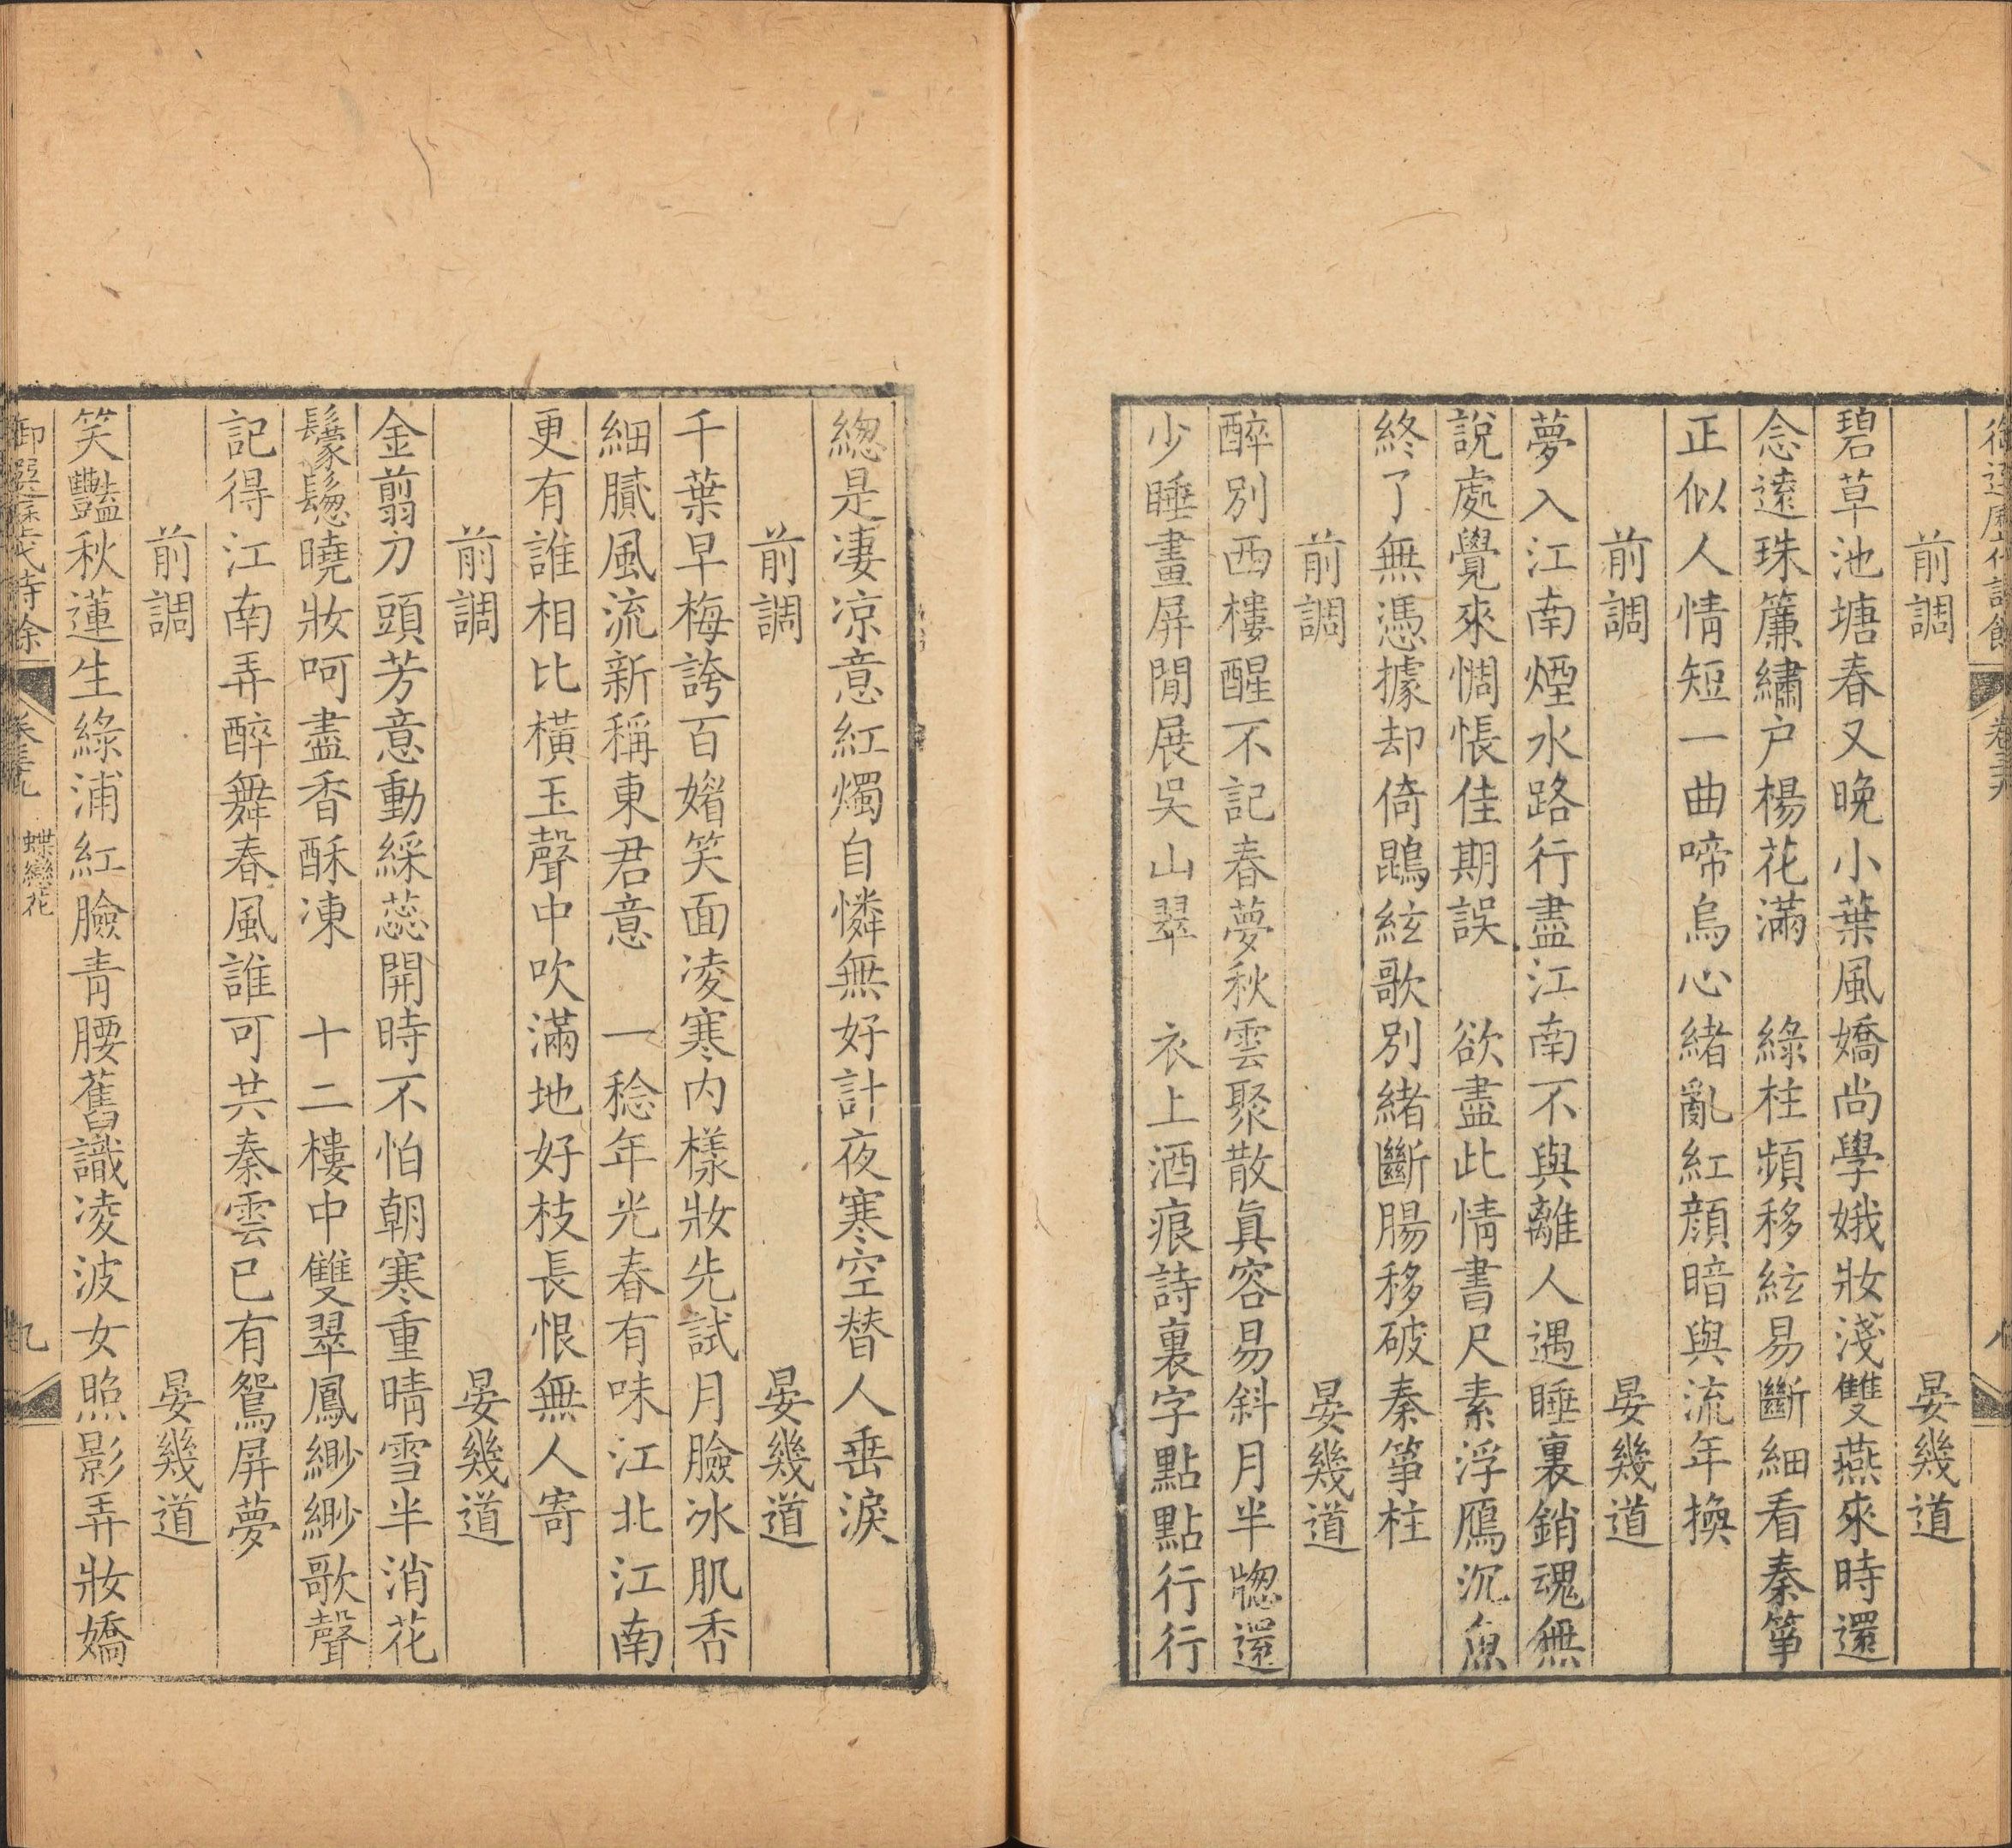 御選歷代詩餘 卷三十九 八
前調 晏幾道
碧草池塘春又晚小葉風嬌尚學娥妝淺雙燕來時還
念遠珠簾繡戶楊花滿 綠柱頻移絃易斷細看秦箏
正似人情短一曲啼烏心緒亂紅顏暗與流年換
前調 晏幾道
夢入江南煙水路行盡江南不與離人遇睡裏銷魂無
說處覺來惆悵佳期誤 欲盡此情書尺素浮鴈沉魚
終了無憑據却倚鵾絃歌別緒斷腸移破秦箏柱
前調 晏幾道
醉別西樓醒不記春夢秋雲聚散眞容易斜月半牕還
少睡畫屏閒展吳山翠 衣上酒痕詩裏字點點行行
總是凄凉意紅燭自憐無好計夜寒空替人垂淚
前調 晏幾道
千葉早梅誇百媚笑面凌寒内樣妝先試月臉冰肌香
細膩風流新稱東君意 一稔年光春有味江北江南
更有誰相比橫玉聲中吹滿地好枝長恨無人寄
前調 晏幾道
金翦刀頭芳意動綵蕊開時不怕朝寒重晴雪半消花
鬖鬆曉妝呵盡香酥凍 十二樓中雙翠鳳緲緲歌聲
記得江南弄醉舞春風誰可共秦雲已有鴛屏夢
前調 晏幾道
笑豔秋蓮生綠浦紅臉青腰舊識凌波女照影弄妝嬌
御選歷代詩餘 卷三十九 蝶戀花 九